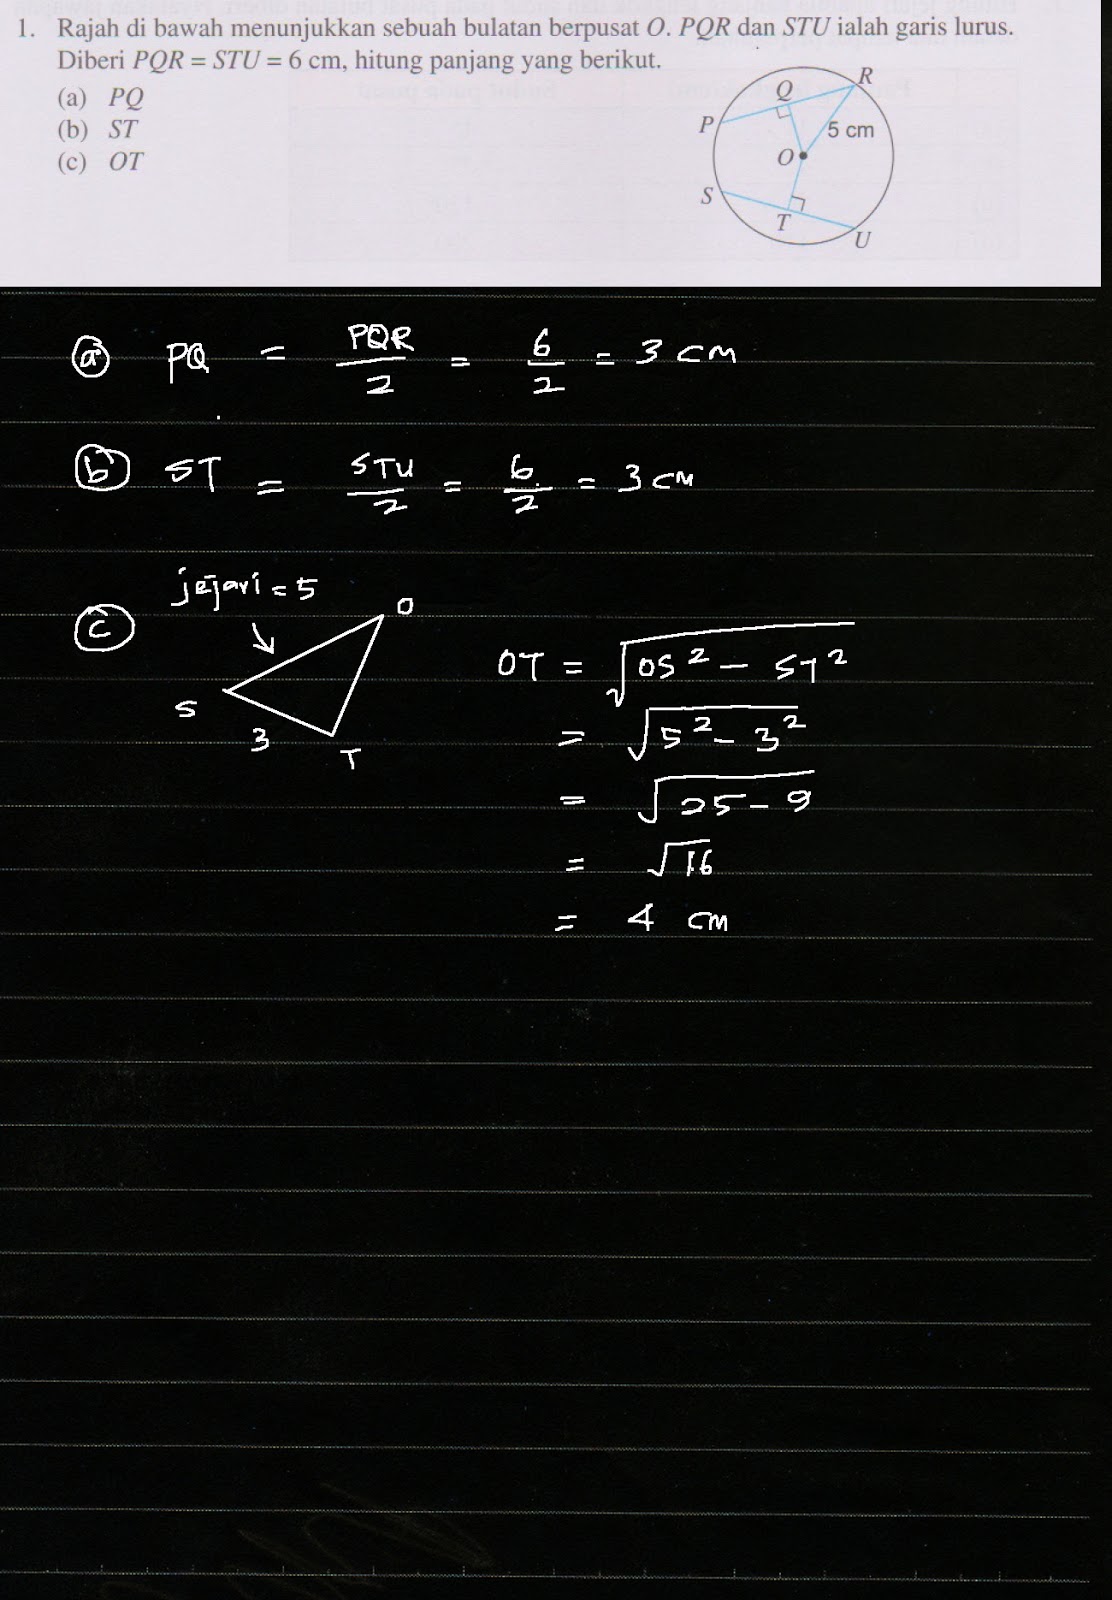 1. Rajah di bawah menunjukkan sebuah bulatan berpusat O. PQR dan STU ialah garis lurus.
Diberi PQR = STU = 6 cm, hitung panjang yang berikut.
(a) PQ
(b) ST
(c) OT
R
Q
P
5 cm
O
S
T
U
(a) PQ = PQR/2 = 6/2 = 3 cm
(b) ST = STU/2 = 6/2 = 3 cm
(c)
jejari = 5
O
S
3
T
OT = √(OS² - ST²)
= √(5² - 3²)
= √(25 - 9)
= √16
= 4 cm